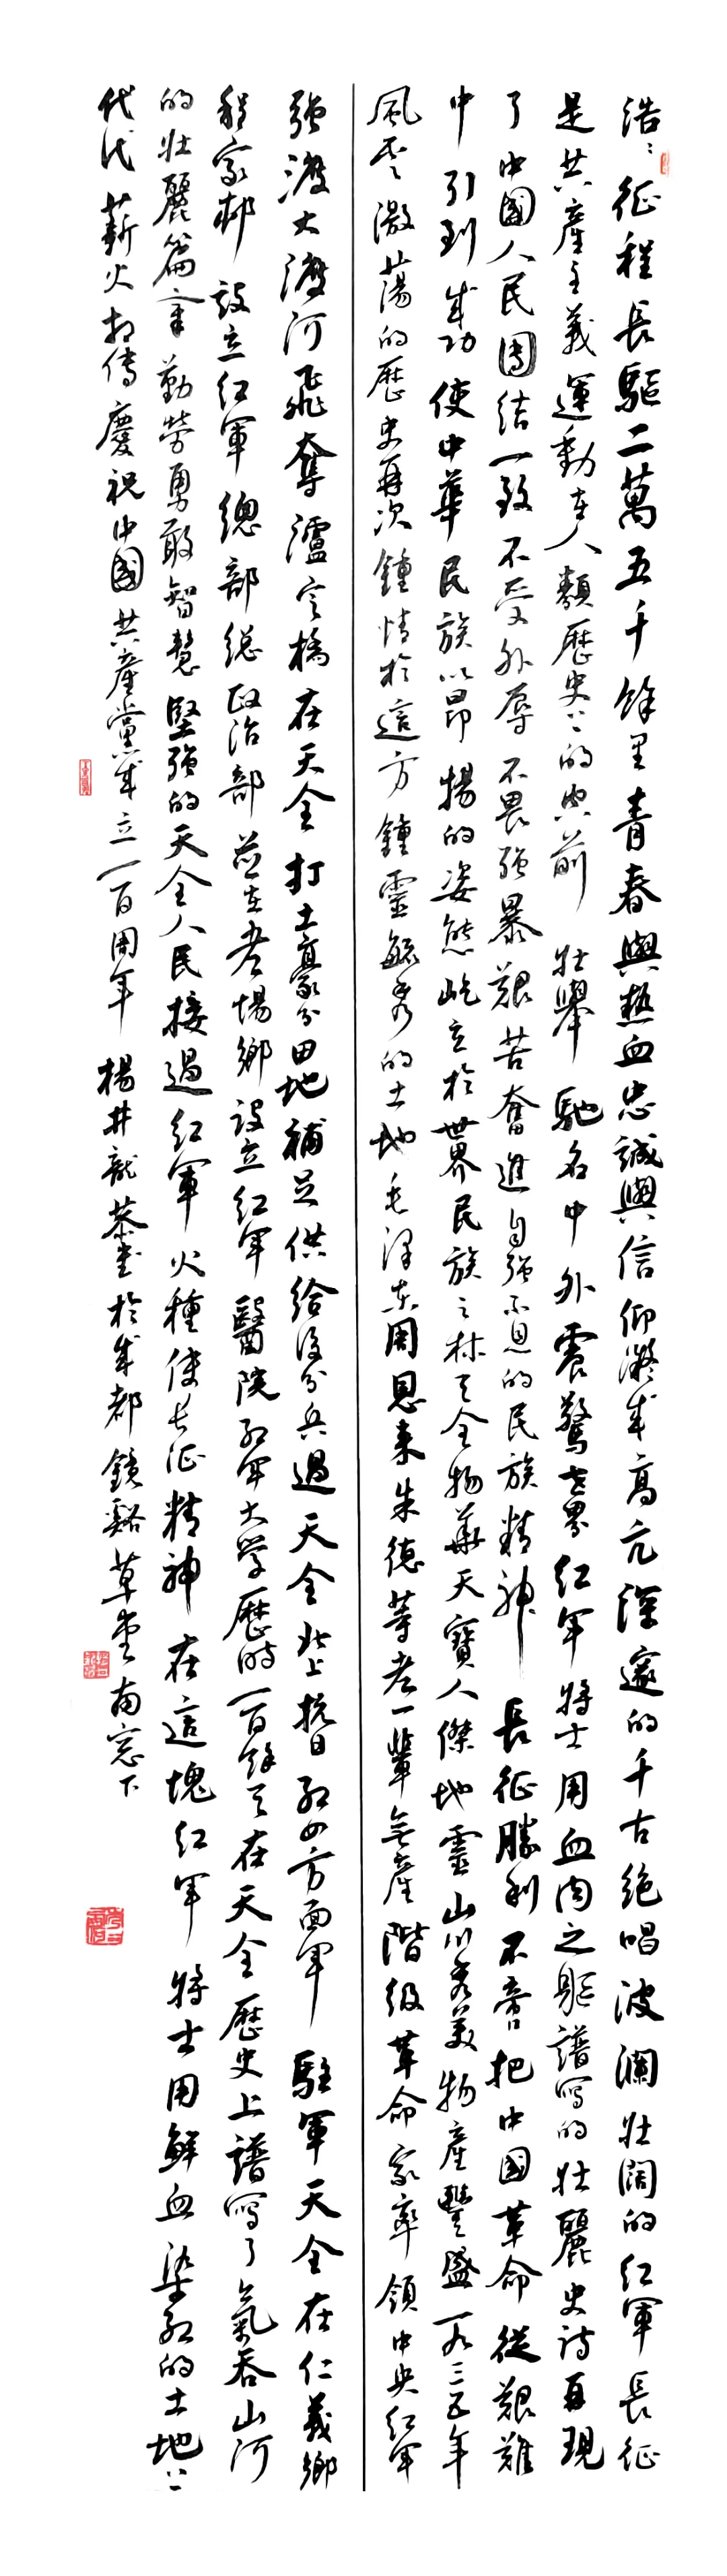 浩〻征程長驅二萬五千餘里青春與熱血忠誠與信仰凝成高亢深邃的千古絕唱波瀾壯闊的紅軍長征
是共產主義運動在人類歷史上的空前壯舉馳名中外震驚世界紅軍將士用血肉之軀譜寫的壯麗史詩再現
了中國人民團结一致不受外辱不畏强暴艱苦奮進自强不息的民族精神長征勝利不啻把中國革命從艱難
中引到成功使中華民族以昂揚的姿態屹立於世界民族之林天全物華天寶人傑地靈山川秀美物產豐盛一九三五年
風雲激蕩的歷史再次鍾情於這方鍾靈毓秀的土地毛澤东周恩来朱德等老一輩無產階级革命家率領中央红軍
强渡大渡河飛奪瀘定橋在天全打土豪分田地補足供給後分兵過天全北上抗日红四方面軍駐軍天全在仁義鄉
程家村設立红軍總部總政治部並在老場鄉設立红军醫院红军大学歷時一百餘天在天全歷史上譜寫了氣吞山河
的壯麗篇章勤勞勇敢智慧堅强的天全人民接過红軍火種使长征精神在這塊红军將士用鮮血染红的土地上
代代薪火相傳慶祝中國共產黨成立一百周年楊井龍恭書於成都鏡谿草堂南窓下